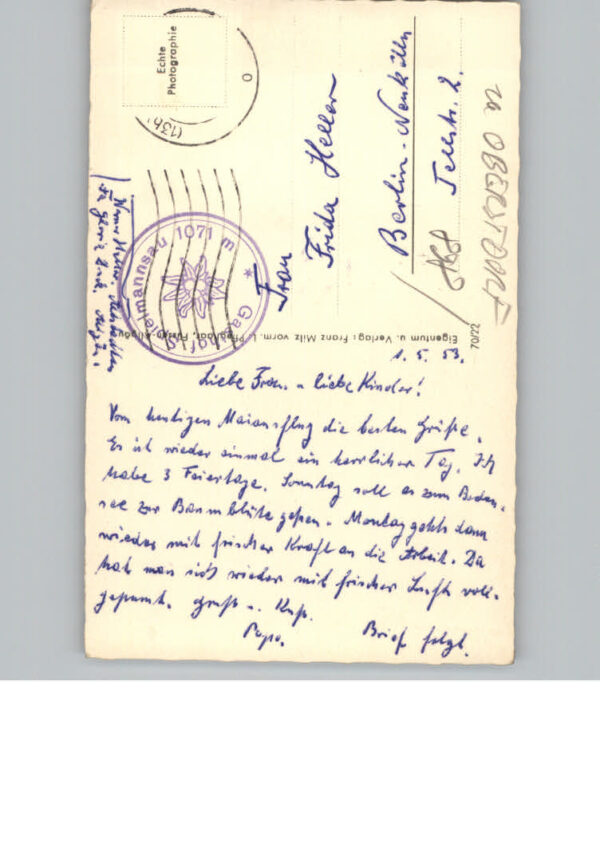 1. 5. 53.
Liebe Frau u. liebe Kinder!
Vom heutigen Maiausflug die besten Grüße.
Es ist wieder einmal ein herrlicher Tag. Ich
habe 3 Feiertage. Sonntag soll es zum Boden-
see zur Baumblüte gehen. Montag gehts dann
wieder mit frischer Kraft an die Arbeit. Da
hat man sich wieder mit frischer Luft voll-
gepumt. Gruß u. Kuß.
Papa. Brief folgt.
Frau
Frida Heller
Berlin-Neukölln
Tellstr. 2.
ZU OBERSTDORF
Echte
Photographie
(13b)
Gasthof Spielmannsau 1071 m *
Eigentum u. Verlag: Franz Milz vorm.
70/22